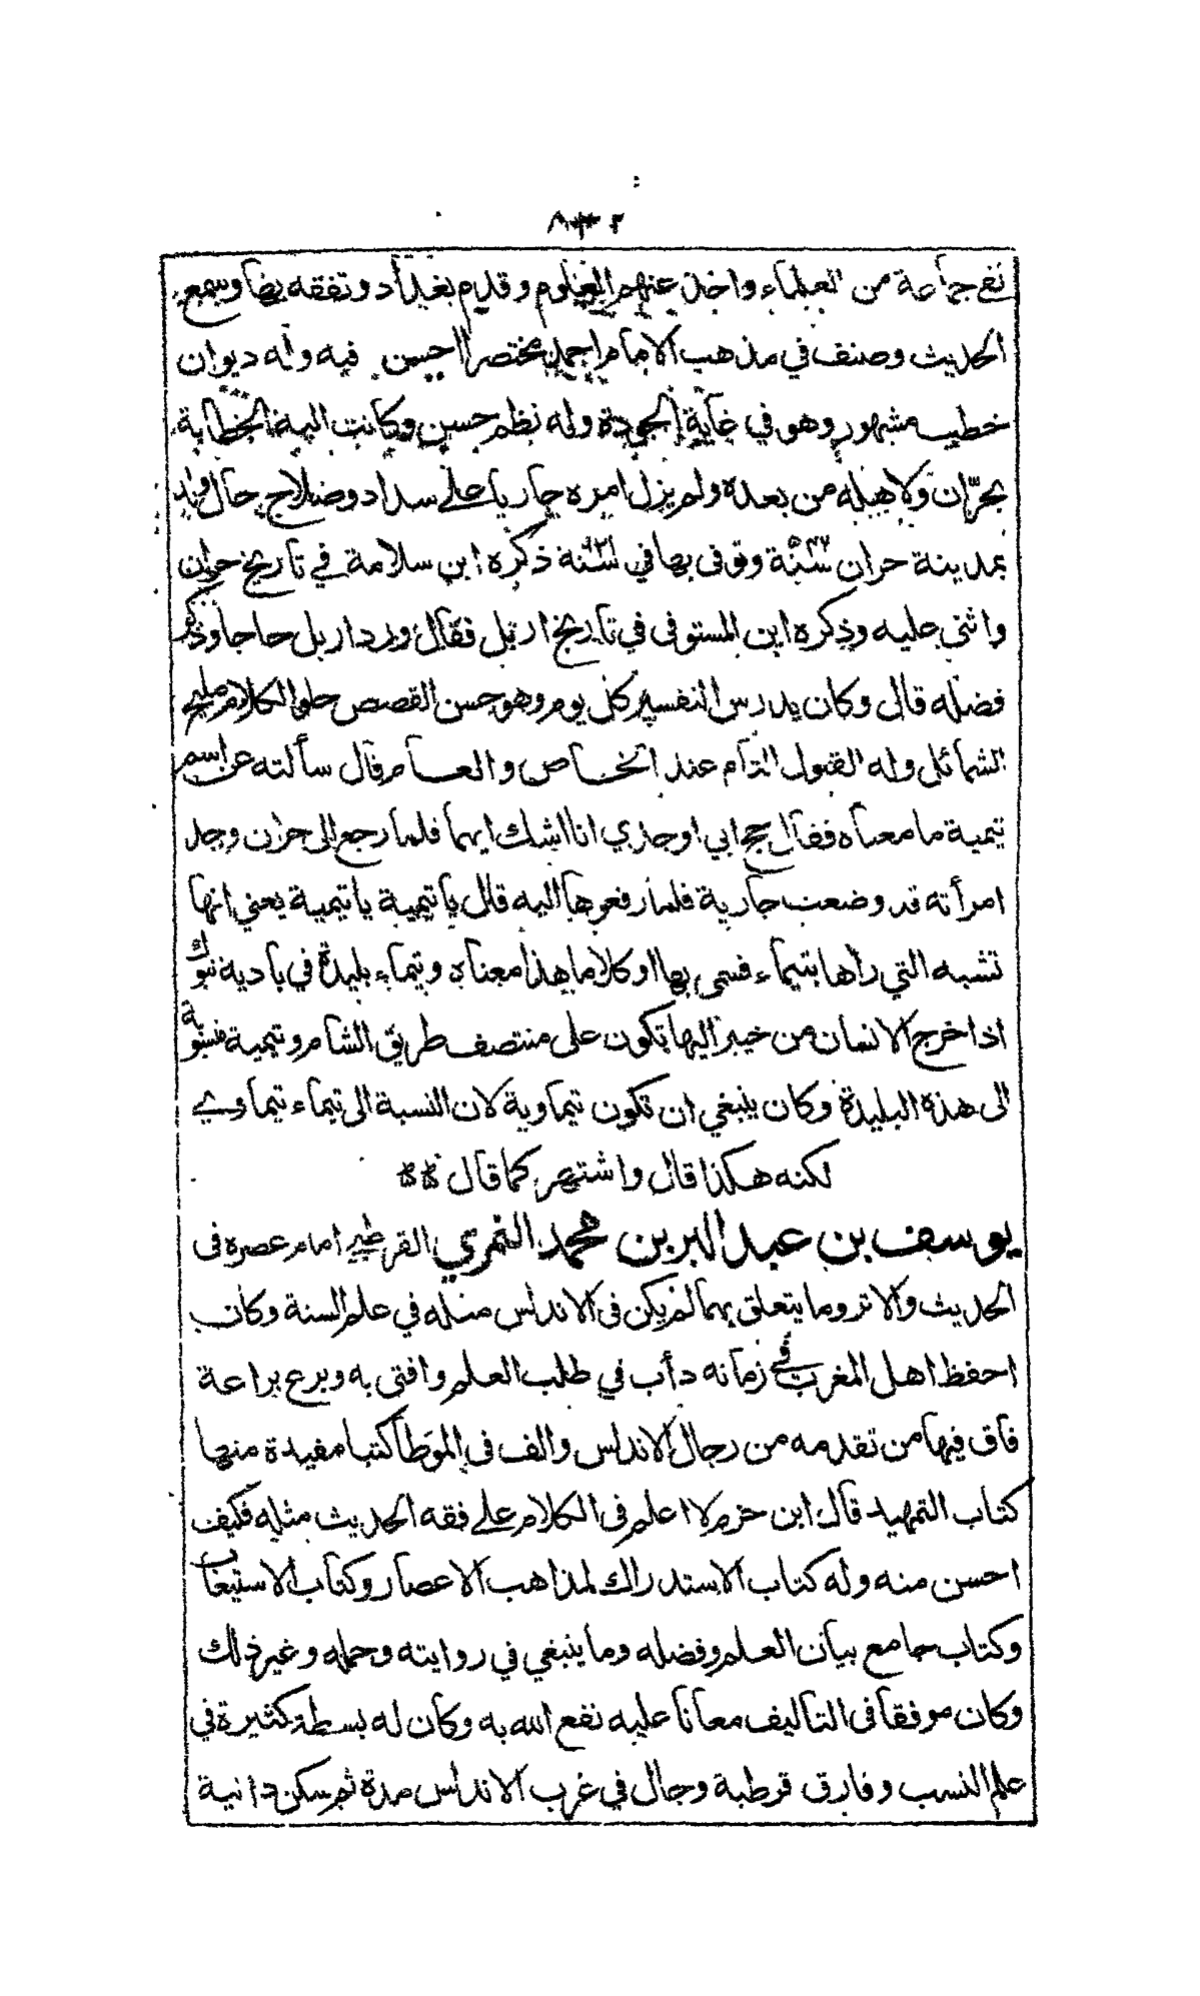 جماعة من العلماء واخذ عنهم العلوم وقدم بغداد وتفقه بها وسمع
الحديث وصنف في مذهب الامام احمد مختصرا احسن فيه وله ديوان
خطب مشهور وهو في غاية الجودة وله نظم حسن وكانت اليه الخطابة
بحرّان ولاهله من بعده ولم يزل امره جاريا على سداد وصلاح حال ولد
بمدينة حران سنة وتوفى بها في سنة ذكره ابن سلامة في تاريخ حران
واثنى عليه وذكره ابن المستوفى في تاريخ اربل فقال ورد اربل حاجا وذكر
فضله قال وكان يدرس التفسير كل يوم وهو حسن القصص حلو الكلام مليح
الشمائل وله القبول التام عند الخاص والعام قال سألته عن اسم
تيمية ما معناه فقال حج ابي او جدي انا اشك ايهما فلما رجع الى حران وجد
امرأته قد وضعت جارية فلما رفعوها اليه قال يا تيمية يا تيمية يعني انها
تشبه التي رأها بتيماء فسمى بها او كلاما هذا معناه وتيماء بليدة في بادية تبوك
اذا خرج الانسان من خيبر اليها تكون على منتصف طريق الشام وتيمية منسوبة
الى هذه البليدة وكان ينبغي ان تكون تيماوية لان النسبة الى تيماء تيماوي
لكنه هكذا قال واشتهر كما قال **
يوسف بن عبد البر بن محمد النمري القرطبي امام عصره فى
الحديث والاثر وما يتعلق بهما لم يكن فى الاندلس مثله في علم السنة وكان
احفظ اهل المغرب في زمانه دأب في طلب العلم وافتى به وبرع براعة
فاق فيها من تقدمه من رجال الاندلس والف فى الموَطأ كتبا مفيدة منها
كتاب التمهيد قال ابن حزم لا اعلم فى الكلام على فقه الحديث مثله فكيف
احسن منه وله كتاب الاستدراك لمذاهب الاعصار وكتاب الاستيعاب
وكتاب جامع بيان العلم وفضله وما ينبغي في روايته وحمله وغير ذلك
وكان موفقا فى التأليف معانا عليه نفع الله به وكان له بسطة كثيرة في
علم النسب وفارق قرطبة وجال في غرب الاندلس مدة ثم سكن دانية